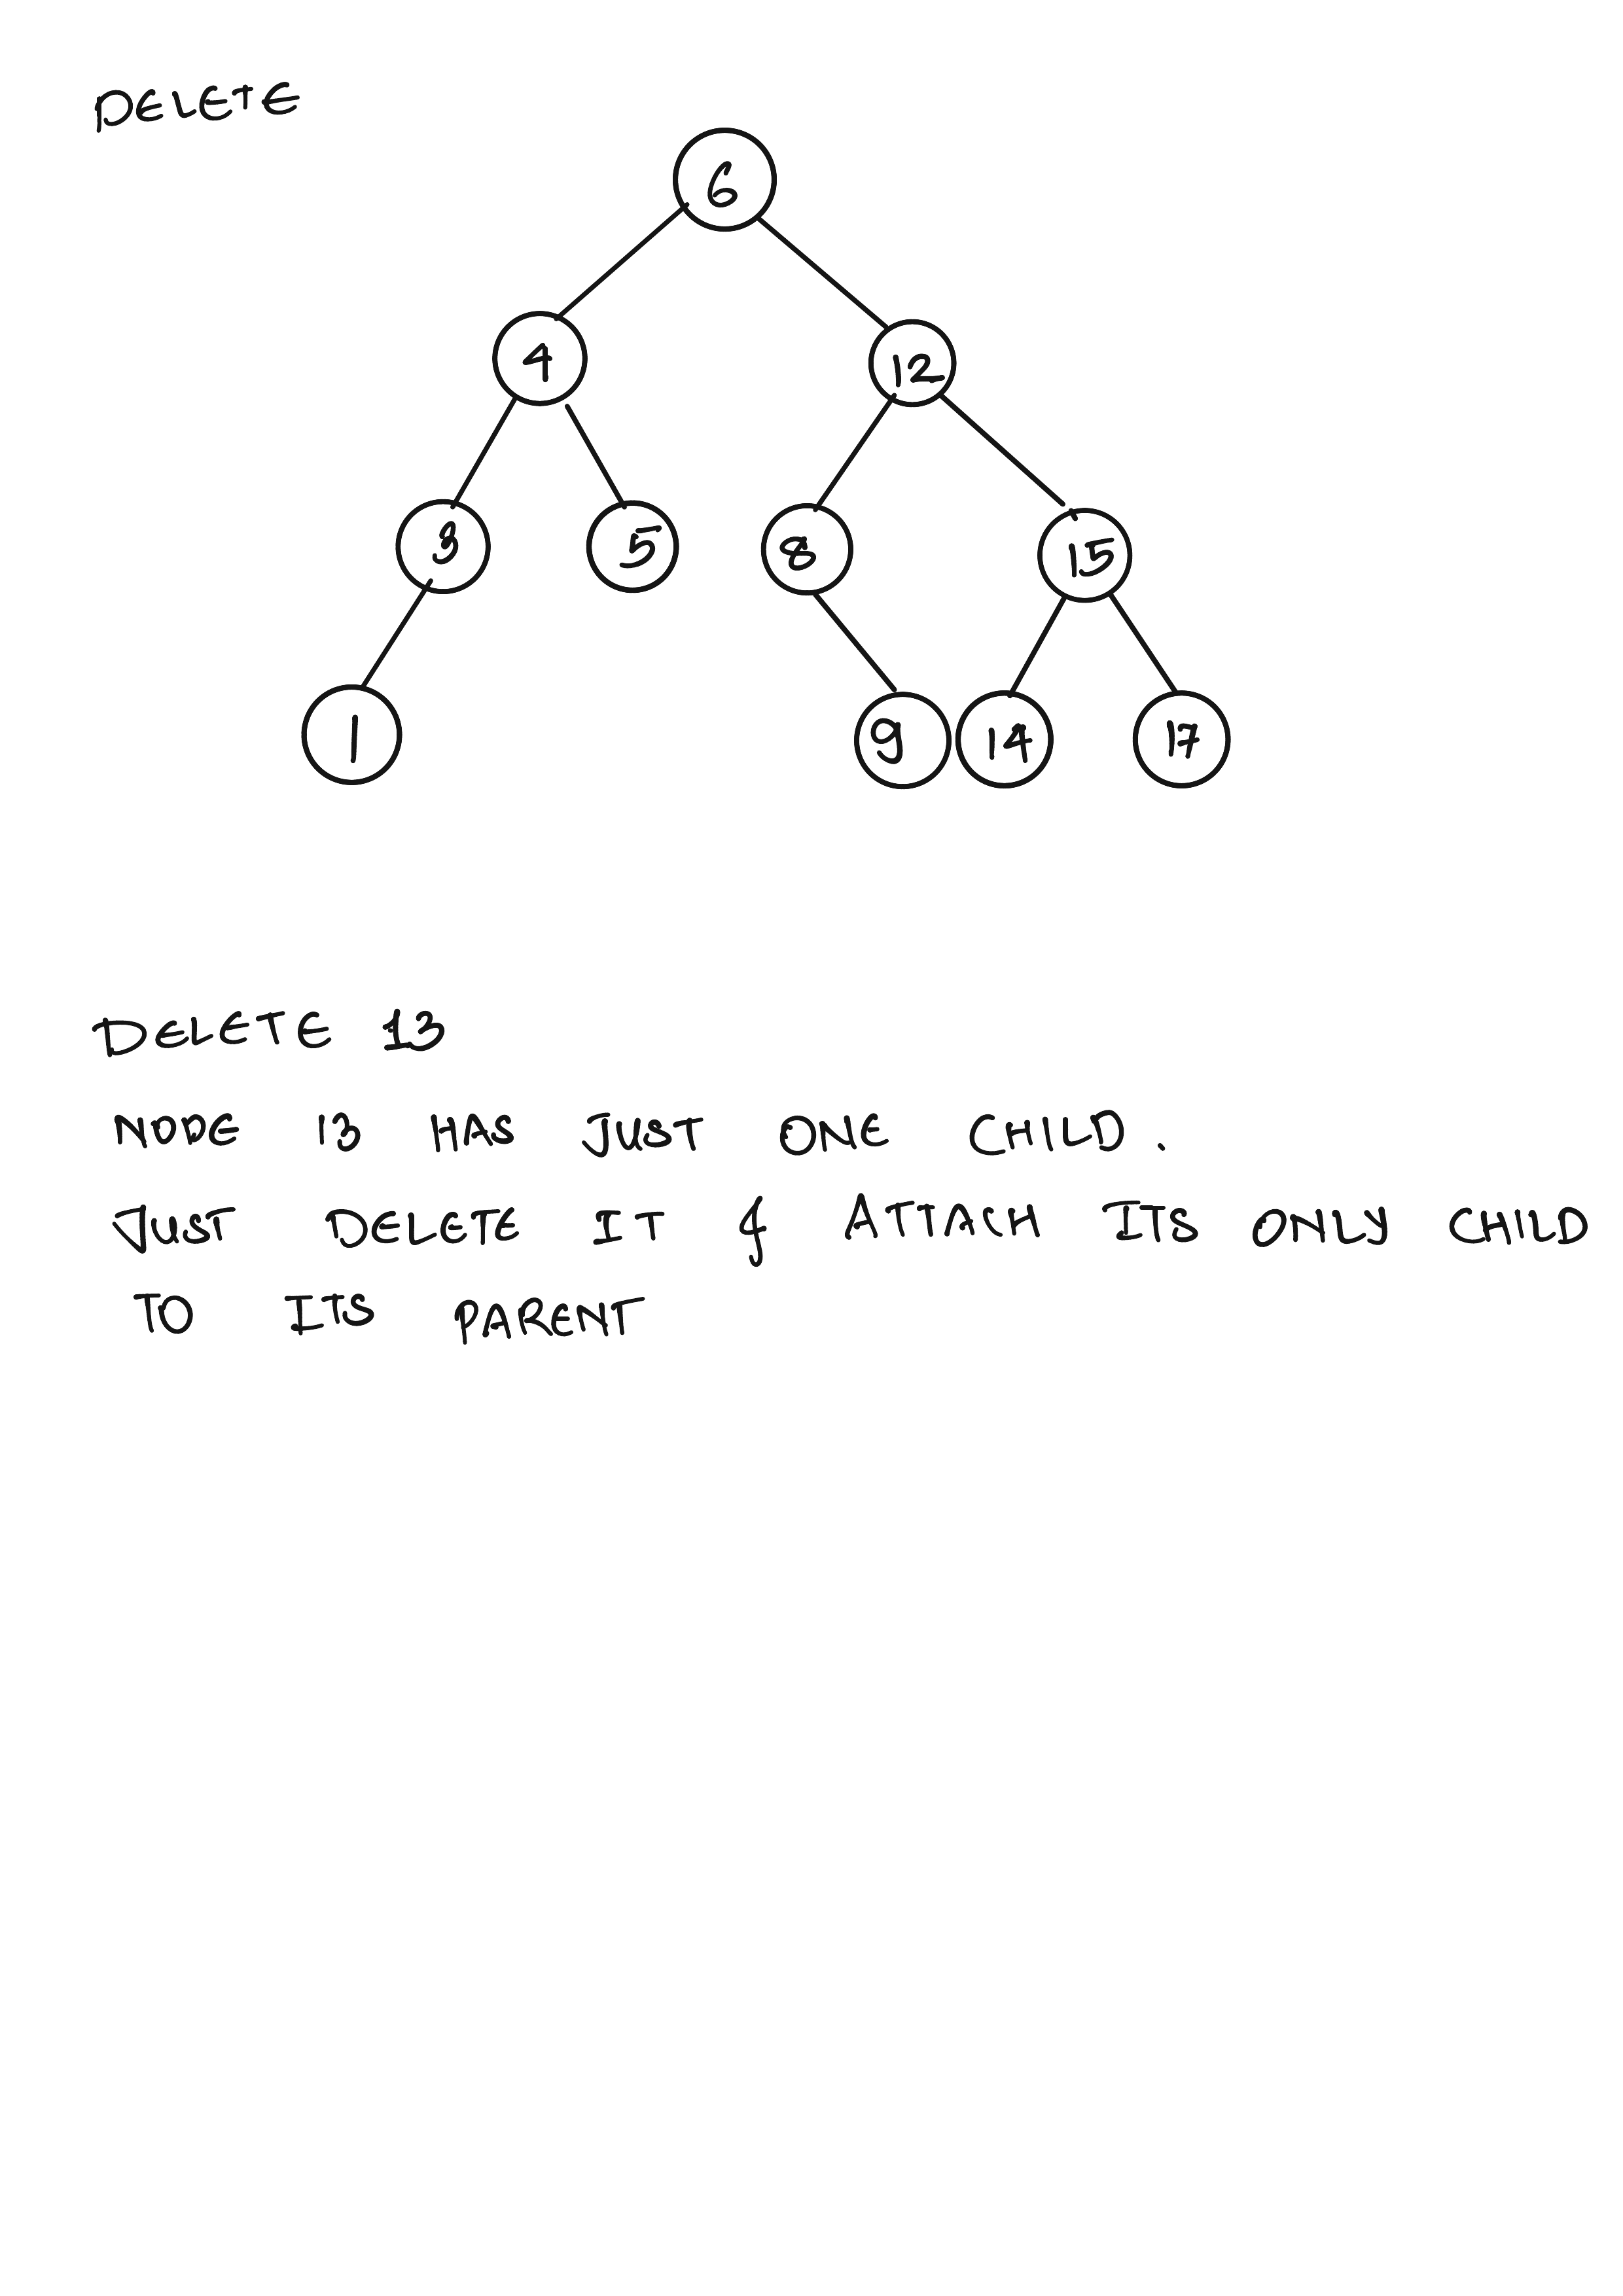 DELETE
6
4 12
3 5 8 15
1 9 14 17
DELETE 13
NODE 13 HAS JUST ONE CHILD.
JUST DELETE IT & ATTACH ITS ONLY CHILD
TO ITS PARENT